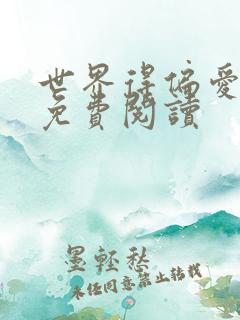 世界得偏愛
免費閱讀
墨輕愁
未经同意禁止转载